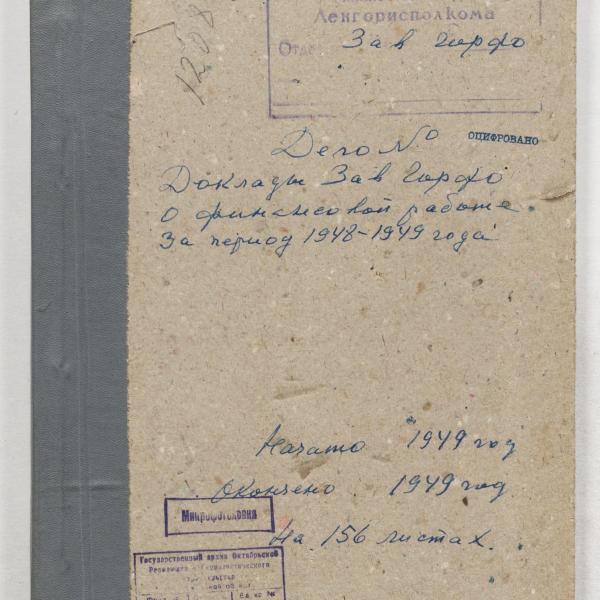 1208
Ленгорисполкома
Зав Горфо
Дело №
ОЦИФРОВАНО
Доклады Зав Горфо
о финансовой работе.
За период 1948-1949 года
Начато 1949 год
Окончено 1949 год
Микрофотокопия
На 156 листах.
Государственный архив Октябрьской
Революции